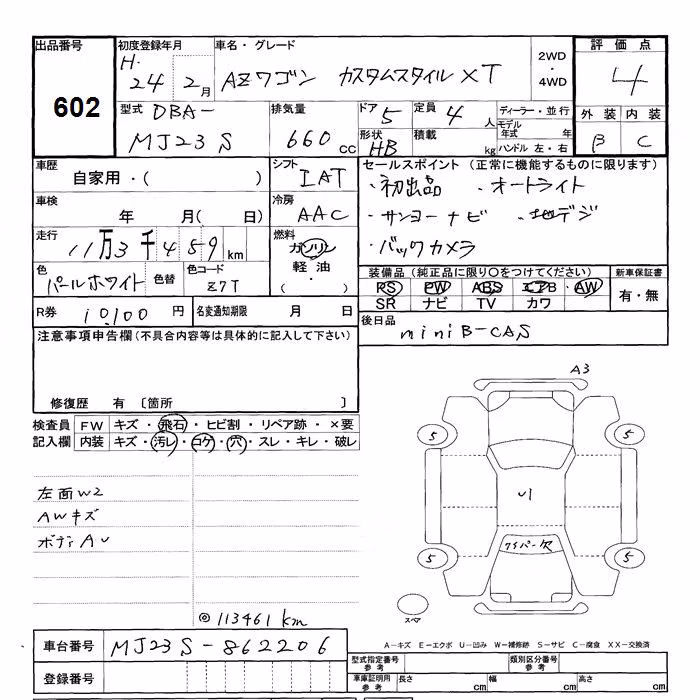 出品番号 初度登録年月 車名・グレード 2WD・4WD 評価点
602 H.24 2月 AZワゴン カスタムスタイル XT 4
型式 DBA- 排気量 ドア 5 定員 4人 ディーラー・並行 外装 内装
MJ23S 660cc 形状 HB 積載 kg モデル年式 年 ハンドル 左・右 B C
車歴 自家用・( ) シフト IAT セールスポイント (正常に機能するものに限ります)
車検 年 月( 日) 冷房 AAC ・初出品 ・オートライト
・サンヨーナビ ・地デジ
走行 11万3千459km 燃料 ガソリン 軽油 ・( ) ・バックカメラ
色 パールホワイト 色替 色コード Z7T 装備品 (純正品に限り○をつけてください) 新車保証書
PS PW ABS エアB AW 有・無
SR ナビ TV カワ
R券 10,100円 名変通知期限 月 日 後日品 miniB-CAS
注意事項申告欄(不具合内容等は具体的に記入して下さい)
修復歴 有 〔箇所 〕
検査員記入欄 FW キズ・飛石・ヒビ割・リペア跡・×要
内装 キズ・汚レ・コゲ・穴・スレ・キレ・破レ
A3
5 5
U1
左面W2
AWキズ
ボディAU
ワイパー欠
5 5
スペア
◎113461km
A-キズ E-エクボ U-凹み W-補修跡 S-サビ C-腐食 XX-交換済
車台番号 MJ23S-862206
型式指定番号参考 類別区分番号参考
登録番号 車庫証明用参考 長さ cm 幅 cm 高さ cm